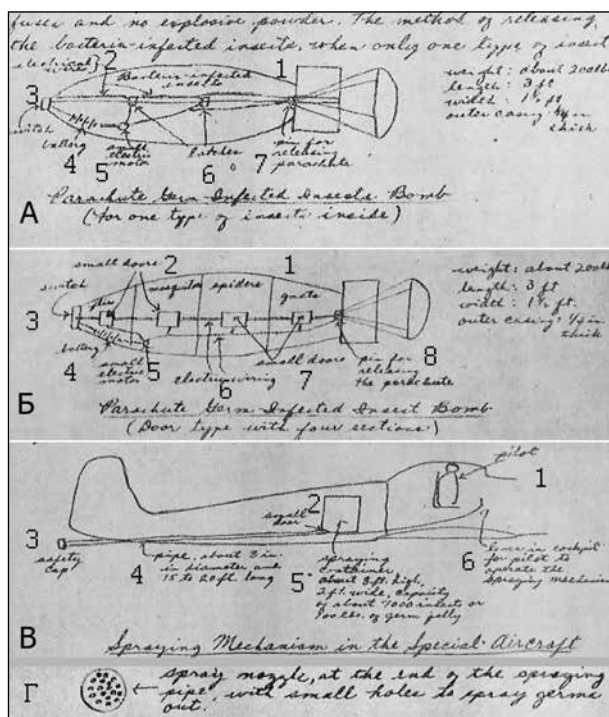 fuses and no explosive powder. The method of releasing
the bacteria-infected insects, when only one type of insect
electrical wire
2
Bacteria-infected
insects
1
3
weight: about 200lbs
length: 3 ft
width: 1½ ft
outer casing: ¼in
thick
switch
battery
4
small
electric
motor
5
latches
6
7
pin for
releasing
parachute
А
Parachute Germ-Infected Insects Bomb
(for one type of insects inside)
small doors
2
1
switch
flies
mosquitos
spiders
gnats
3
weight: about 200lb
length: 3 ft
width: 1½ ft.
outer casing: ¼in
thick
battery
4
small
electric
motor
5
electric wiring
6
small doors
7
pin for
releasing
the parachute
8
Б
Parachute Germ-Infected Insect Bomb
(Door type with four sections)
pilot
1
small
door
2
3
safety
cap
4
pipe, about 3 in.
in diameter and
15 to 20 ft. long
5
spraying
container
about 3 ft. high,
2 ft. wide, capacity
of about
insects or
lbs. of germ jelly
6
lever in cockpit
for pilot to
operate the
spraying mechanism
В
Spraying Mechanism in the Special Aircraft
Г
spray nozzle, at the end of the spraying
pipe, with small holes to spray germs
out.